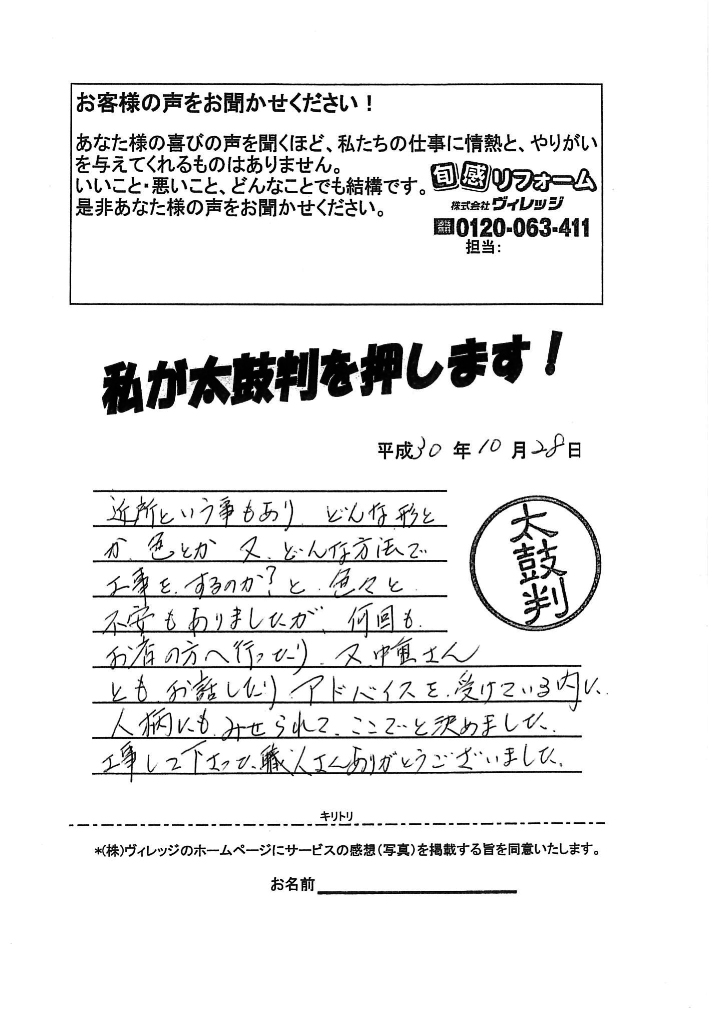 お客様の声をお聞かせください！
あなた様の喜びの声を聞くほど、私たちの仕事に情熱と、やりがい
を与えてくれるものはありません。
いいこと・悪いこと、どんなことでも結構です。
是非あなた様の声をお聞かせください。
旬感リフォーム
株式会社ヴィレッジ
0120-063-411
担当：
私が太鼓判を押します！
平成30年10月28日
近所という事もあり、どんな形と
か、色とか 又、どんな方法で
工事を、するのか？と、色々と
不安もありましたが、何回も、
お店の方へ行ったり、又中重さん
ともお話したり、アドバイスを、受けている内に、
人柄にも、みせられて、ここでと決めました。
工事して下さった、職人さんありがとうございました。
太鼓判
キリトリ
*(株)ヴィレッジのホームページにサービスの感想(写真)を掲載する旨を同意いたします。
お名前